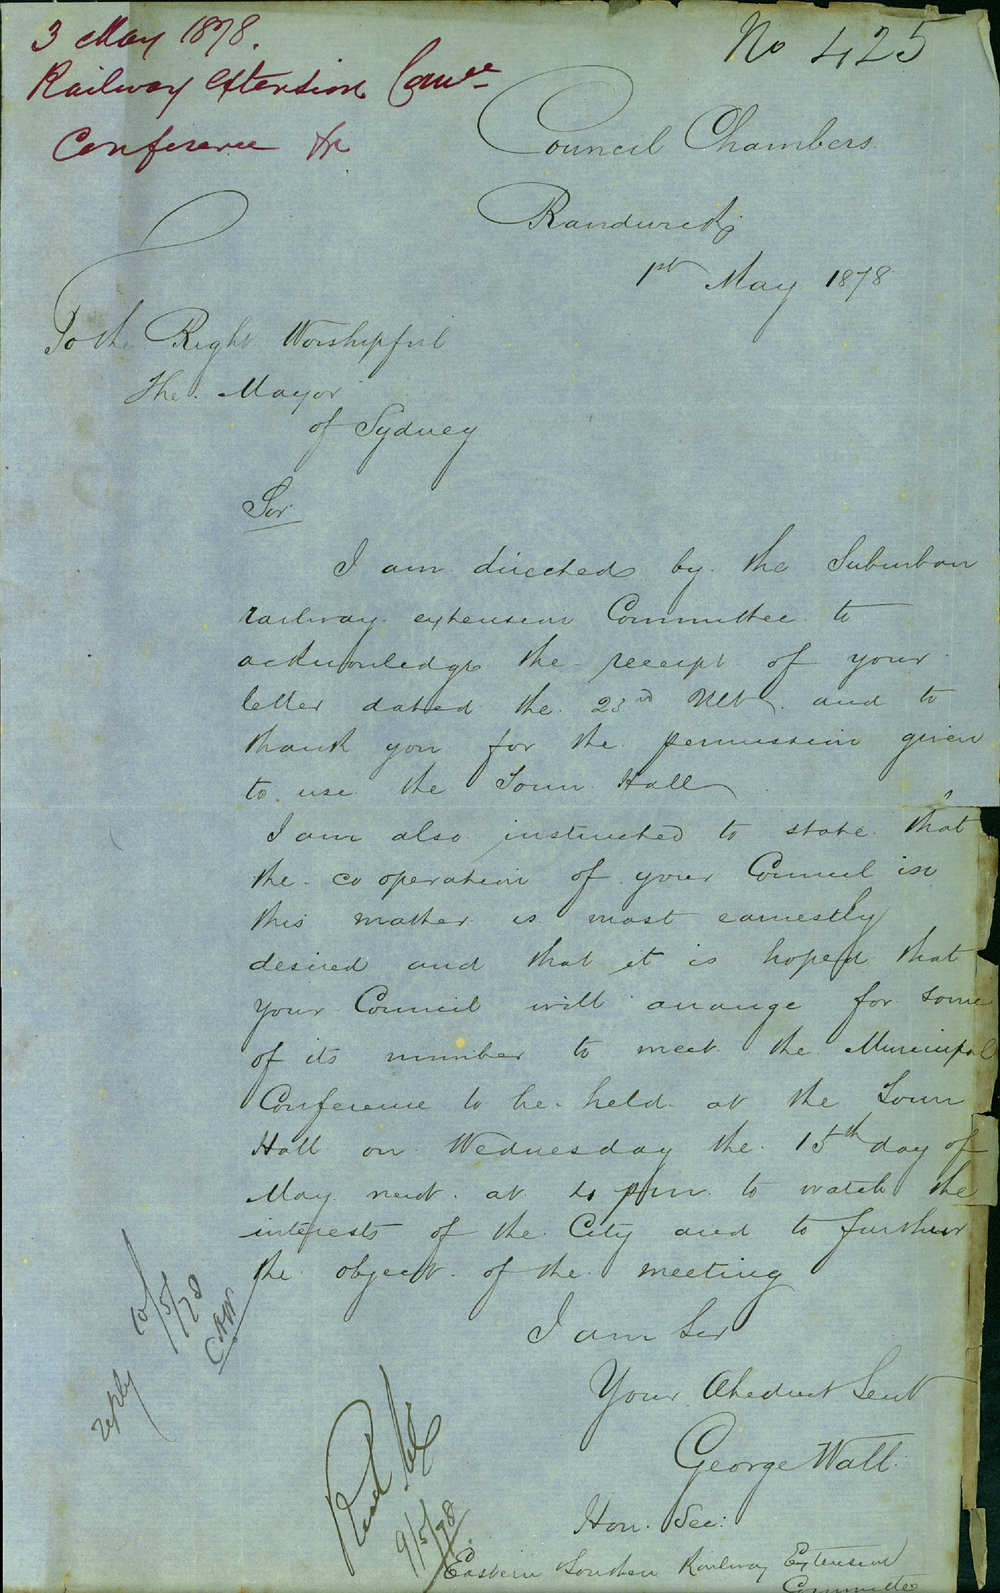 3 May 1878.
No 425
Railway Extension Comee
Conference &c
Council Chambers.
Randwick
1st May 1878
To the Right Worshipful
The Mayor
of Sydney
Sir
I am directed by the Suburban
railway extension Committee to
acknowledge the receipt of your
letter dated the 23rd Ult. and to
thank you for the permission given
to use the Town Hall
I am also instructed to state that
the co operation of your Council in
this matter is most earnestly
desired and that it is hoped that
your Council will arrange for some
of its number to meet the Municipal
Conference to be held at the Town
Hall on Wednesday the 15th day of
May next at pm to watch the
interests of the City and to further
the object of the meeting
I am Sir
Your Obedient Servt
George Wall
Hon. Sec:
Eastern Southern Railway Extension
Committee
reply 10/5/78
Read
9/5/78